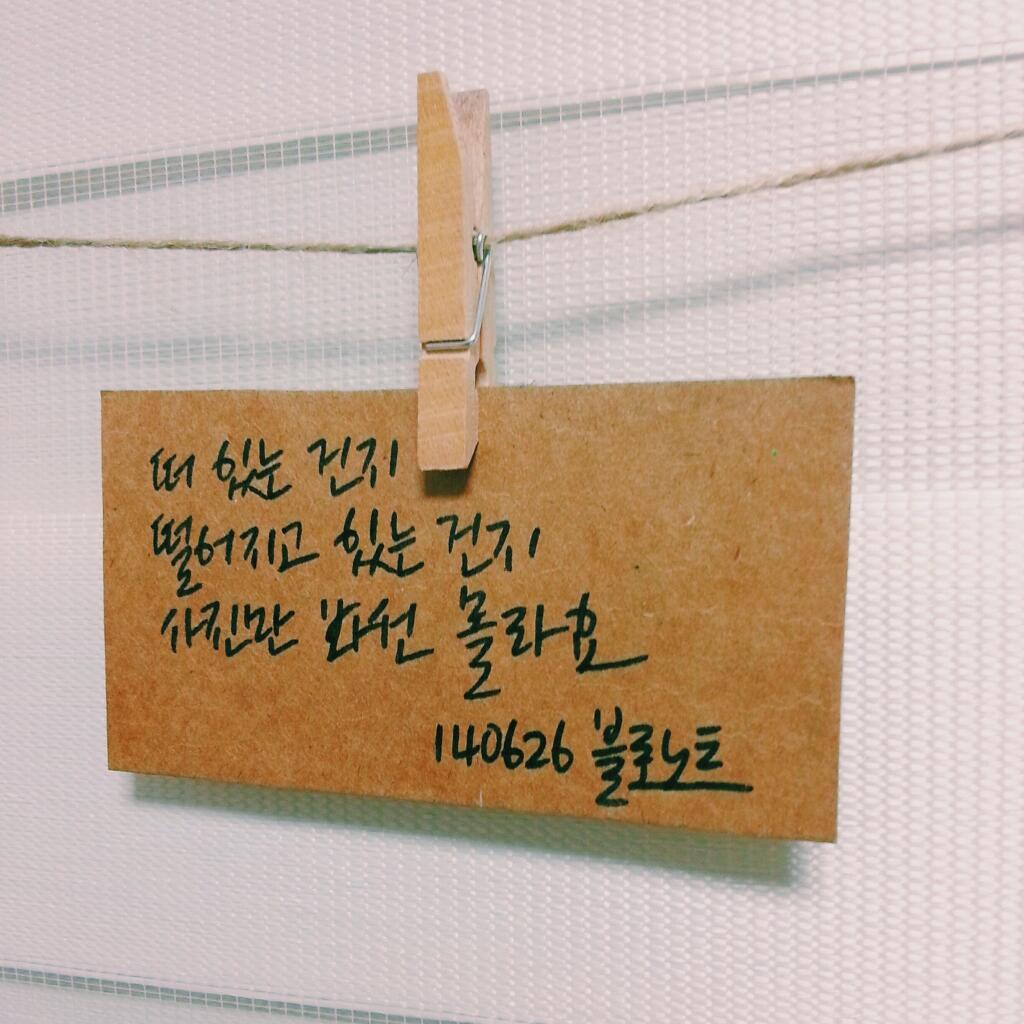 떠 있는 건지
떨어지고 있는 건지
사진만 봐선 몰라요
140626 블로노트